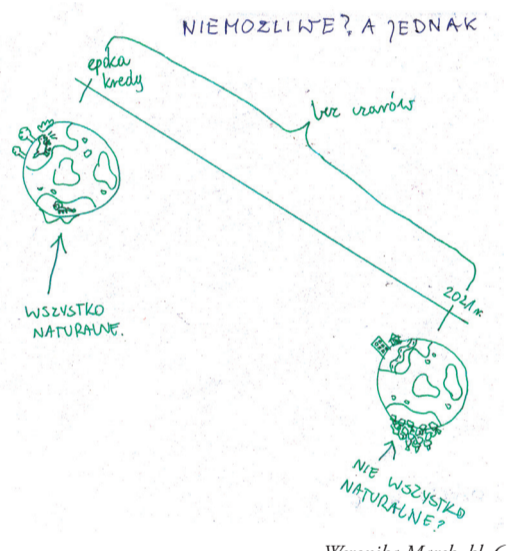 NIEMOŻLIWE? A JEDNAK
epoka
kredy
bez czarów
2021 r.
WSZYSTKO
NATURALNE.
NIE WSZYSTKO
NATURALNE?